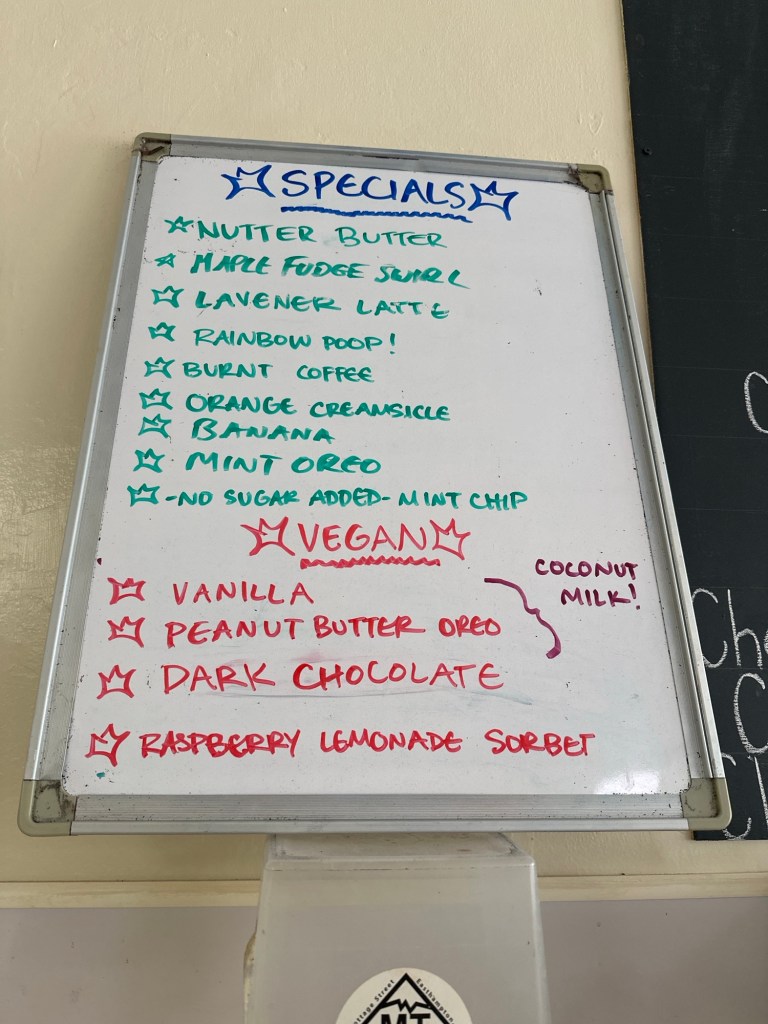 SPECIALS
NUTTER BUTTER
MAPLE FUDGE SWIRL
LAVENER LATTE
RAINBOW POOP!
BURNT COFFEE
ORANGE CREAMSICLE
BANANA
MINT OREO
-NO SUGAR ADDED- MINT CHIP
VEGAN
VANILLA
PEANUT BUTTER OREO
DARK CHOCOLATE
COCONUT
MILK!
RASPBERRY LEMONADE SORBET
Easthampton
MT